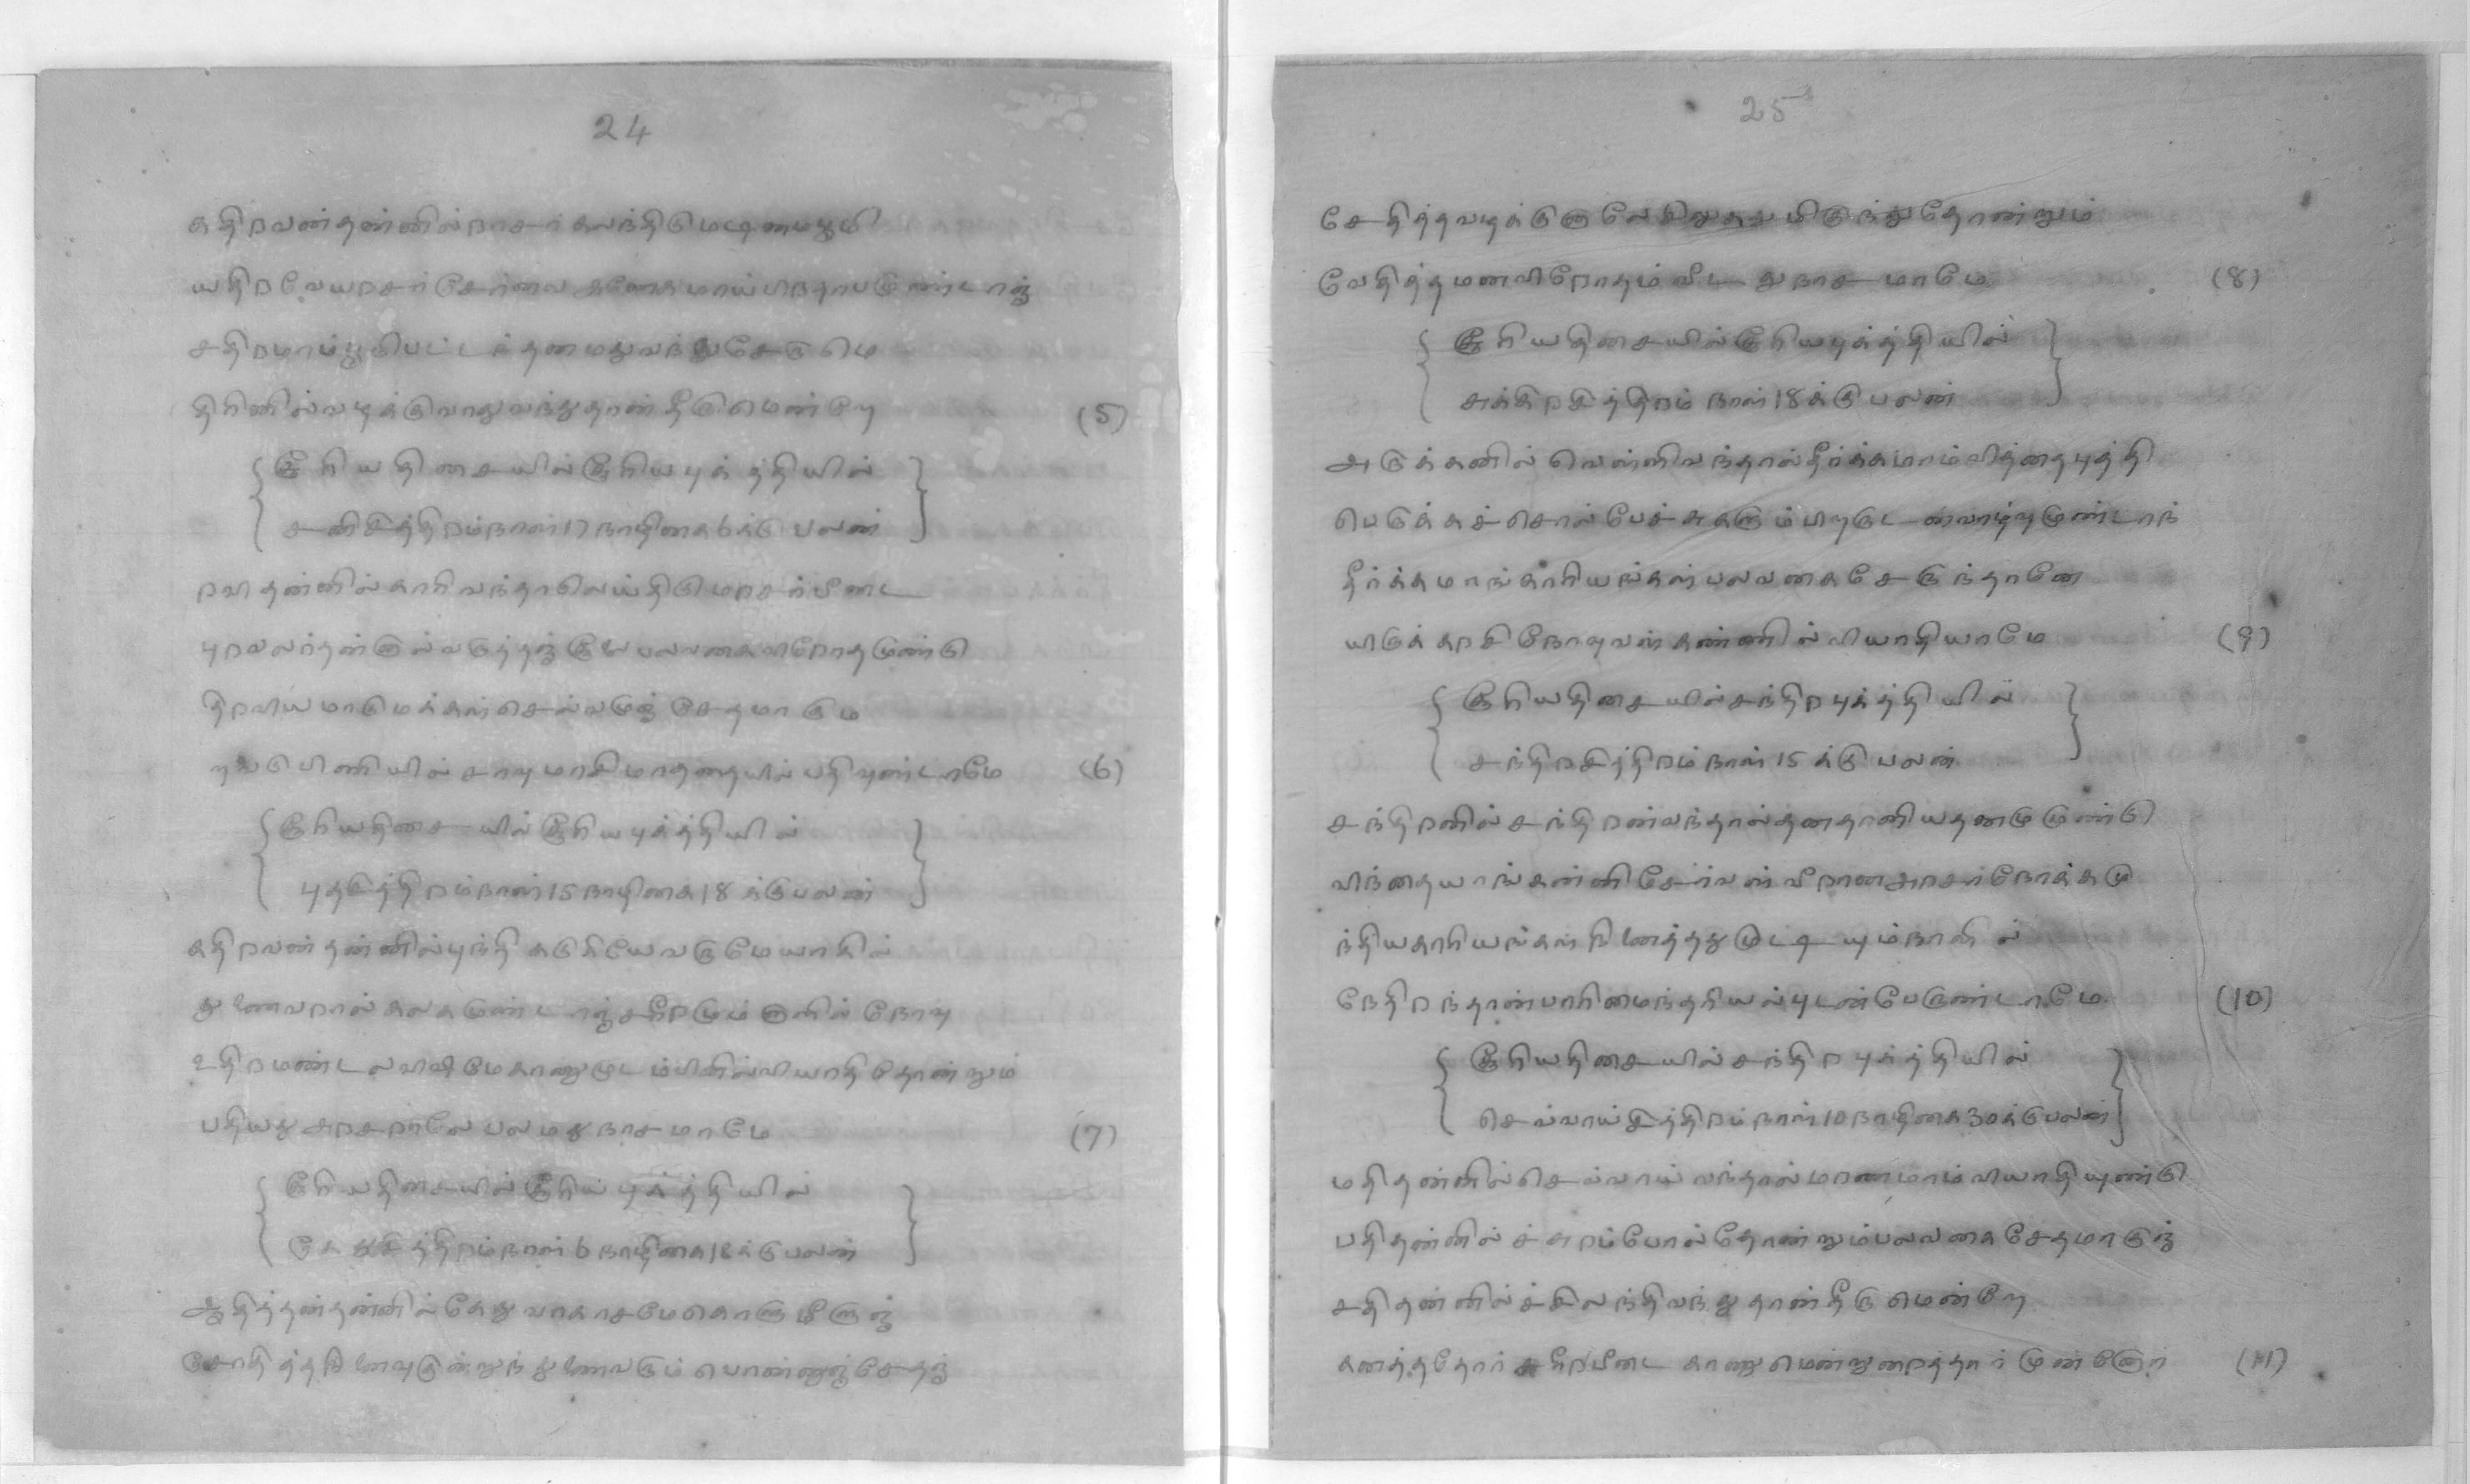 24
கதிறவன்தன்னில்றாசர் கலந்திடு
யதிறவேயறசர் சேர்வை அனேகமாய்
சதிறமாம்பூமிபட்டந் தனமதுவந்துசேரு மெ
திரினில்வழக்குவாதுவந்துதான் தீருமென்றே (5)
{சூரியதிசையில்சூரியபுக்த்தியில்
சனிசித்திறம்நாள்17நாழிகை6க்கு பலன்}
றவிதன்னில்காரிவந்தாலெய்திடுமறசர்பீடை
புறவலர்தன்னால்வருத்தஞ்சூலை பலவகைவிறோதமுண்டு
திறவியமாடுமக்கள்செல்வமுஞ் சேதமாகும
றுவடுபிணியில்சாவு மாசிமாதனயில் பதிவுண்டாமே (6)
{சூரியதிசையில்சூரியபுக்த்தியில்
புதசித்திறம்நாள்15நாழிகை18க்குபலன்}
கதிறவன்தன்னில்புந்தி கருகியேவருமேயாகில்
துணைவறால்கலகமுண்டாஞ்சரீறமும் னலில் நோவு
உதிறமண்டலவிவிமேகாணுமுடம்பினில்வியாதிதோன்றும்
பதியதுஅறசறாலேபலமதுநாசமாமே (7)
{சூரியதிசையில்சூரியபுக்த்தியில்
கேதுசித்திறம்நாள்6நாழிகை18க்குபலன்}
ஆதித்தன்தன்னில்கேதுவாகாசமேகொளுமீளுஞ்
சோதித்தரிணைவுகுன்றுந்துணைவரும்பொன்னுஞ்சேதஞ்
25
சேதித்தவழக்குளலேசிறுகதுமிருந்துதோண்றும்
வேதித்தமனவிறோதம்வீடதுநாசமாமே (8)
{சூரியதிசையில்சூரியபுக்த்தியில்
சுக்கிறசித்திறம் நாள்18க்குபலன்}
அருக்கனில்வெள்ளிவந்தால்தீர்க்கமாம்வித்தைபுத்தி
பெருக்கச்சொல்பேச்சுகளும்பிறருடன்வாழ்வுமுண்டாந்
தீர்க்கமாங்காரியங்கள்பலவகைசேருந்தானே
யிருக்கறசிநோவுவன்கண்ணில்வியாதியாமே (9)
{சூரியதிசையில்சந்திறபுக்த்தியில்
சந்திறசித்திறம்நாள்15க்குபலன்}
சந்திறனில்சந்திறன்வந்தால்தனதானியதனமுமுண்டு
விந்தையாங்கன்னிசேர்வள்வீறானஅறசர்நோக்கமு
ந்தியகாரியங்கள்நினைத்ததுமுடியும்நாளில்
நேதிறந்தான்பாரிமைந்தரியல்புடன்பேருண்டாமே (10)
{சூரியதிசையில்சந்திறபுக்த்தியில்
செவ்வாய்சித்திறம்நாள்10நாழிகை30க்குபலன்}
மதிதன்னில்செவ்வாய்வந்தால்மறணமாம்வியாதியுண்டு
பதிதன்னில்ச்சுறம்போல்தோண்றும்பலவகைசேதமாகுஞ்
சதிதன்னில்ச்சிலந்திவந்துதான்தீருமென்றே
கனத்ததோர்சரீறபீடைகாணுமென்றுறைத்தார்முன்னோர் (11)